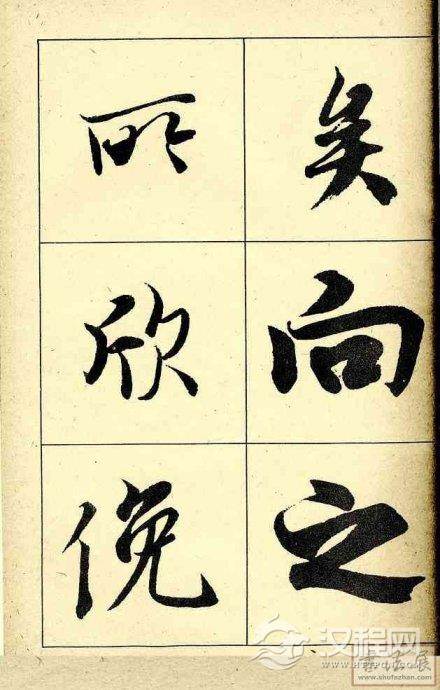 矣向之
所欣俛
汉程网
www.shufazhan.com